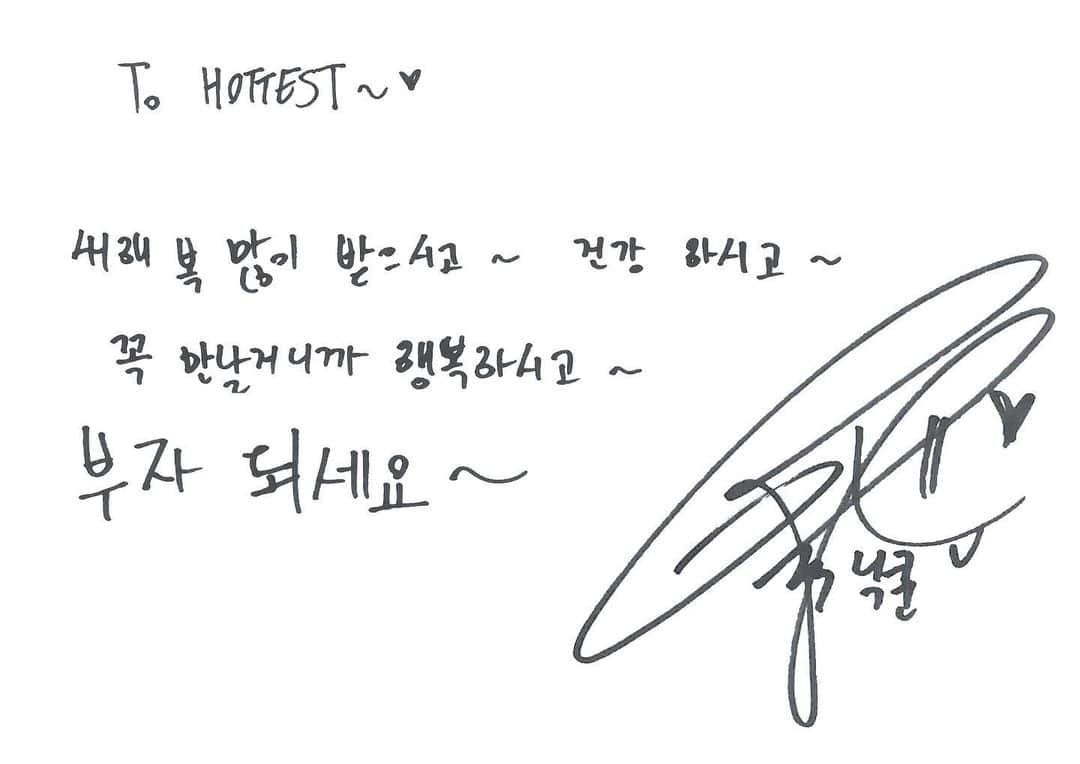 To HOTTEST~♥
새해 복 많이 받으시고~ 건강 하시고~
꼭 만날거니까 행복하시고~
부자 되세요~
닉쿤